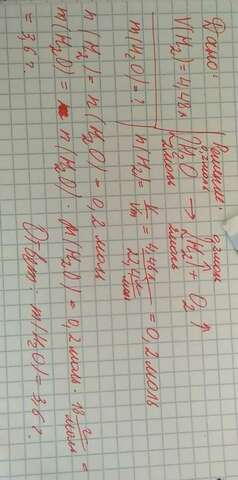 Дано:
V(H₂)=4,48л
m(H₂O)=?
Решение:
0,2моль 0,2моль
2H₂O → 2H₂↑ + O₂↑
2моль 2моль
n(H₂)= V/Vm = 4,48л/22,4л/моль = 0,2моль
n(H₂)=n(H₂O)=0,2моль
m(H₂O)= n(H₂O)·M(H₂O)=0,2моль·18 г/моль =
=3,6г.
Ответ: m(H₂O)=3,6г.